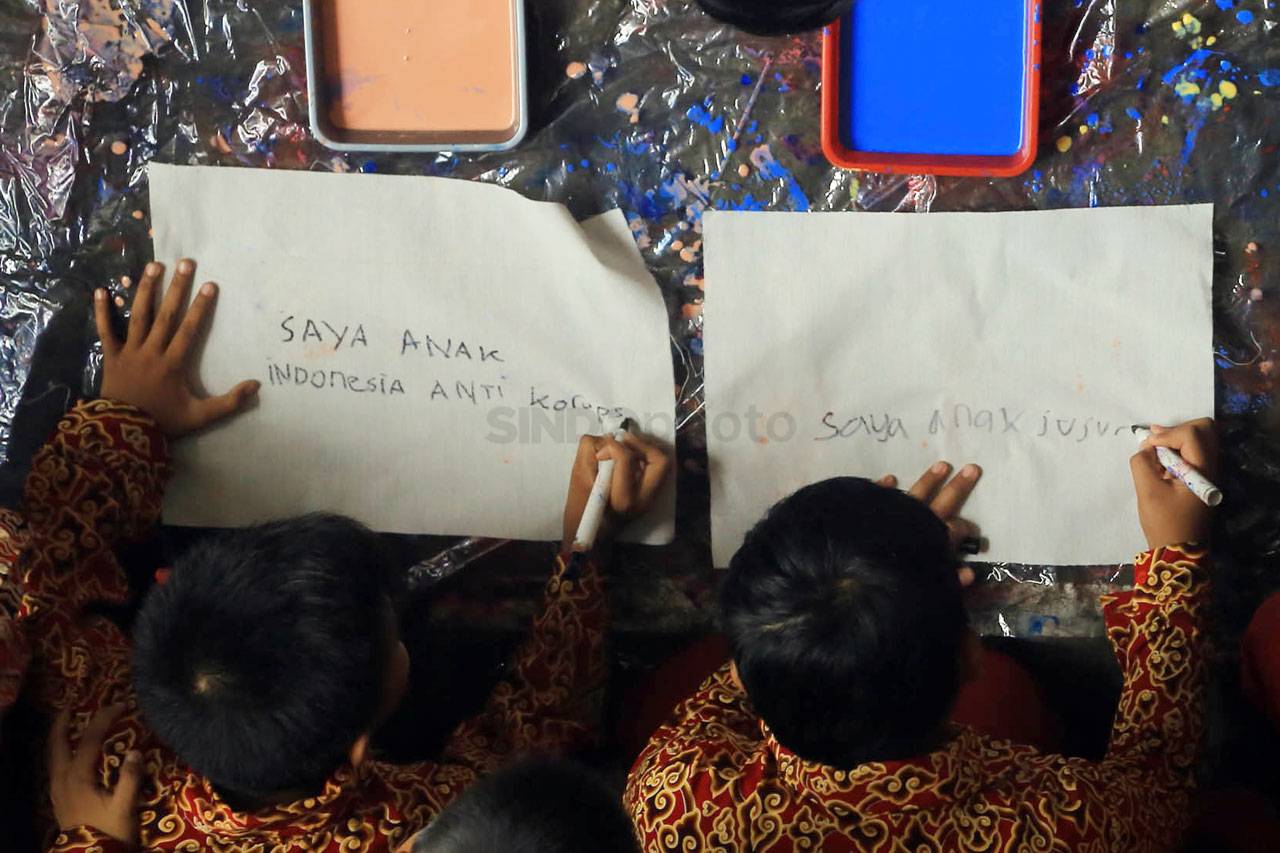 SAYA ANAK
INDONESIA ANTI Korups
Saya Anak jujur
SINDOphoto